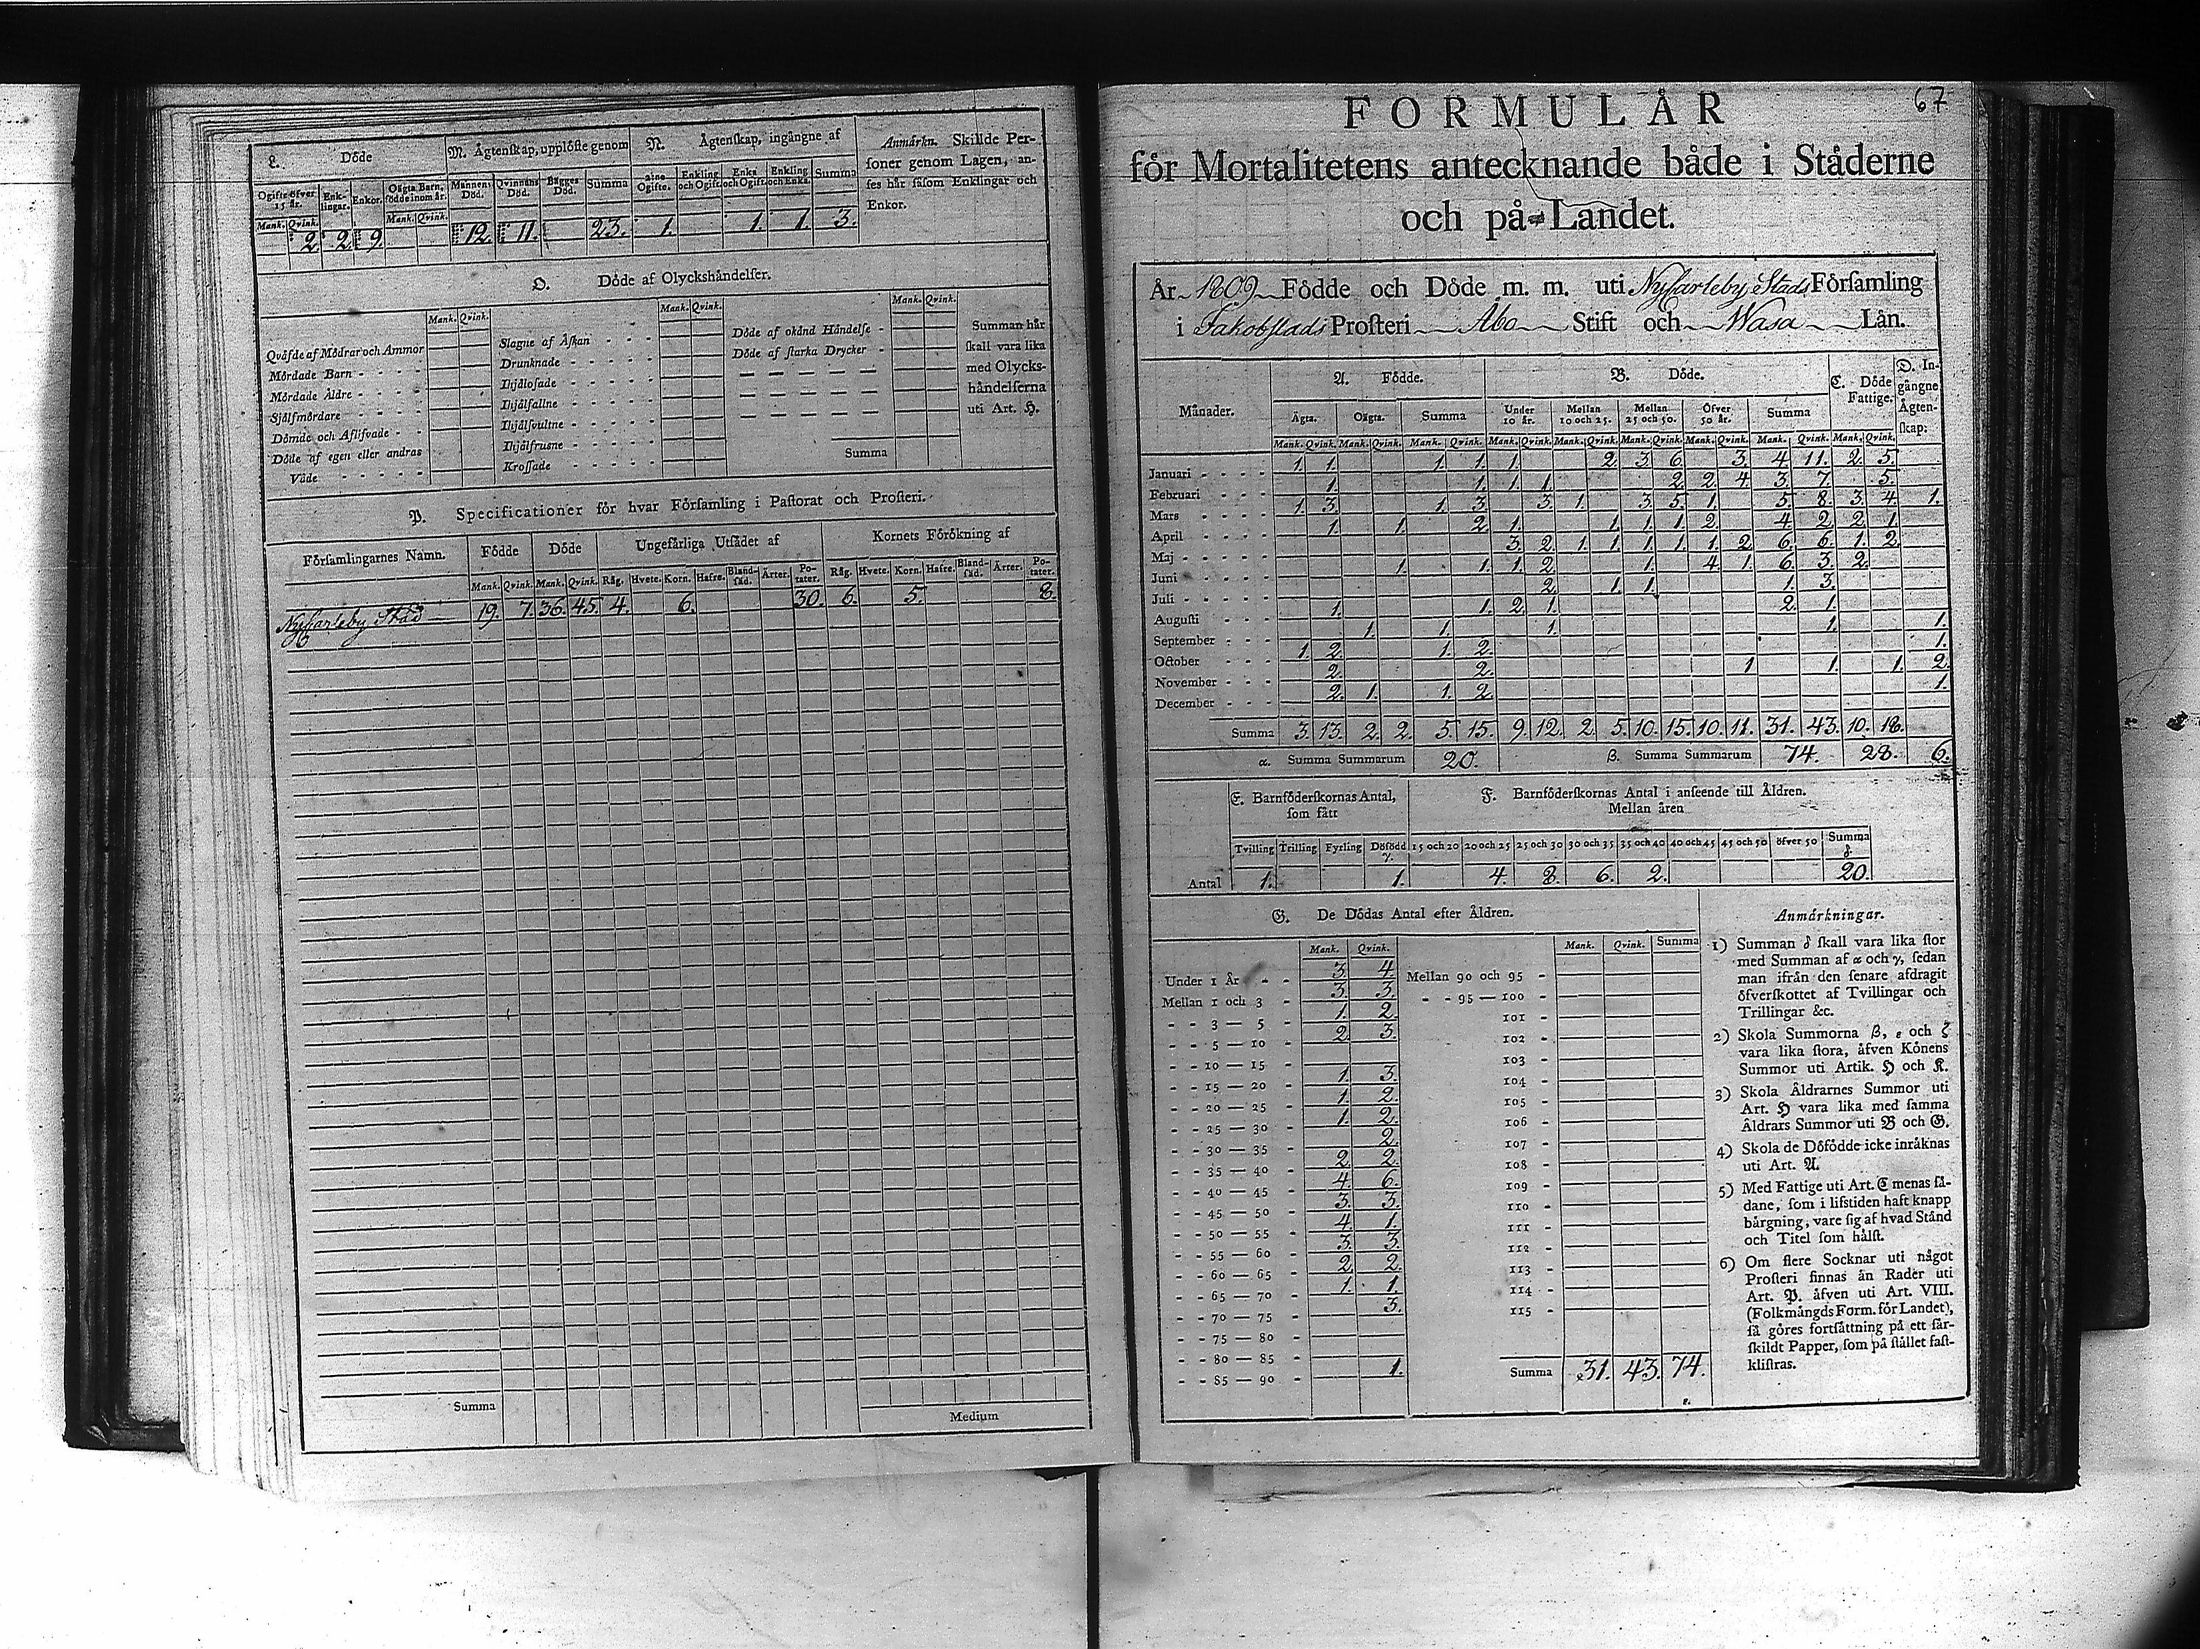 L. Döde
M. Ägtenſkap, upplöſte genom
N. Ägtenſkap, ingångne af
Ogifte öfver 15 år. Enk-lingar. Enkor. Oägta Barn, födde inom år. Mannens Död. Qvinnans Död. Bägges Död. Summa
Ogifte. Enkling och Ogift. Enka och Ogift. Enkling och Enka. Summa
Mank. Qvink. Mank. Qvink.
2. 2. 9. 12. 11. 23. 1. 1. 1. 3.
Anmärkn. Skillde Per-
ſoner genom Lagen, an-
ſes här ſåſom Enklingar och
Enkor.
O. Döde af Olyckshändelſer.
Mank. Qvink. Mank. Qvink. Mank. Qvink.
Qväfde af Mödrar och Ammor
Mördade Barn
Mördade Äldre
Sjelfmördare
Dömde och Aflifvade
Döde af egen eller andras
Våde
Slagne af Åſkan
Drunknade
Ihjälofade
Ihjälfallne
Ihjälfvultne
Ihjälfrusne
Kroſſade
Döde af okänd Händelſe
Döde af ſtarka Drycker
Summa
Summan här
ſkall vara lika
med Olycks-
händelſerna
uti Art. H.
P. Specificationer för hvar Förſamling i Paſtorat och Proſteri.
Förſamlingarnes Namn. Födde Döde Ungefärliga Utſädet af Kornets Förökning af
Mank. Qvink. Mank. Qvink. Råg. Hvete. Korn. Hafre. Bland-ſäd. Ärter. Po-tater. Råg. Hvete. Korn. Hafre. Bland-ſäd. Ärter. Po-tater.
Nycarleby Stad 19. 7. 36. 45. 4. 6. 30. 6. 5. 8.
Summa
Medium
67
FORMULÄR
för Mortalitetens antecknande både i Städerne
och på Landet.
År 1809 Födde och Döde m. m. uti Nycarleby Stads Förſamling
i Jakobſtads Proſteri Åbo Stift och Wasa Län.
Månader. A. Födde. B. Döde. C. Döde Fattige. D. In-gångne Ägten-ſkap:
Ägta. Oägta. Summa Under 10 år. Mellan 10 och 25. Mellan 25 och 50. Öfver 50 år. Summa
Mank. Qvink. Mank. Qvink. Mank. Qvink. Mank. Qvink. Mank. Qvink. Mank. Qvink. Mank. Qvink. Mank. Qvink. Mank. Qvink.
Januari 1. 1. 1. 1. 1. 2. 3. 6. 3. 4. 11. 2. 5.
Februari 1. 1. 1. 1. 2. 2. 4. 3. 7. 5.
Mars 1. 3. 1. 3. 3. 1. 3. 5. 1. 5. 8. 3. 4. 1.
April 1. 1. 2. 1. 1. 1. 1. 2. 4. 2. 2. 1.
Maj 3. 2. 1. 1. 1. 1. 1. 2. 6. 6. 1. 2.
Juni 1. 1. 1. 2. 1. 4. 1. 6. 3. 2.
Juli 2. 1. 1. 1. 3.
Auguſti 1. 1. 2. 1. 2. 1.
September 1. 1. 1. 1. 1.
October 1. 2. 1. 2. 1.
November 2. 2. 1. 1. 1. 2.
December 2. 1. 1. 2. 1.
Summa 3. 13. 2. 2. 5. 15. 9. 12. 2. 5. 10. 15. 10. 11. 31. 43. 10. 18.
α. Summa Summarum 20. β. Summa Summarum 74. 28. 6.
E. Barnföderſkornas Antal, ſom fått
F. Barnföderſkornas Antal i anſeende till Åldren.
Mellan åren
Tvilling Trilling Fyrling Döfödd γ. 15 och 20 20 och 25 25 och 30 30 och 35 35 och 40 40 och 45 45 och 50 öfver 50 Summa δ.
Antal 1. 1. 4. 8. 6. 2. 20.
G. De Dödas Antal efter Åldren.
Mank. Qvink. Mank. Qvink. Summa
Under 1 År 3. 4.
Mellan 1 och 3 3. 3.
3 — 5 1. 2.
5 — 10 2. 3.
10 — 15
15 — 20 1. 3.
20 — 25 1. 2.
25 — 30 1. 2.
30 — 35 2.
35 — 40 2. 2.
40 — 45 4. 6.
45 — 50 3. 3.
50 — 55 4. 1.
55 — 60 3. 3.
60 — 65 2. 2.
65 — 70 1. 1.
70 — 75 3.
75 — 80
80 — 85
85 — 90 1.
Mellan 90 och 95
95 — 100
101
102
103
104
105
106
107
108
109
110
111
112
113
114
115
Summa 31. 43. 74.
ε.
Anmärkningar.
1) Summan δ ſkall vara lika ſtor
med Summan af α och γ, ſedan
man ifrån den ſenare afdragit
öfverſkottet af Tvillingar och
Trillingar &c.
2) Skola Summorna β, ε och ζ
vara lika ſtora, äfven Könens
Summor uti Artik. H och K.
3) Skola Åldrarnes Summor uti
Art. H vara lika med ſamma
Åldrars Summor uti B och G.
4) Skola de Döfödde icke inräknas
uti Art. A.
5) Med Fattige uti Art. C menas ſå-
dane, ſom i lifstiden haft knapp
bärgning, vare ſig af hvad Stånd
och Titel ſom hälſt.
6) Om flere Socknar uti något
Proſteri finnas än Rader uti
Art. P. äfven uti Art. VIII.
(Folkmängds Form. för Landet),
ſå göres fortſättning på ett ſär-
ſkildt Papper, ſom på ſtället faſt-
kliſtras.